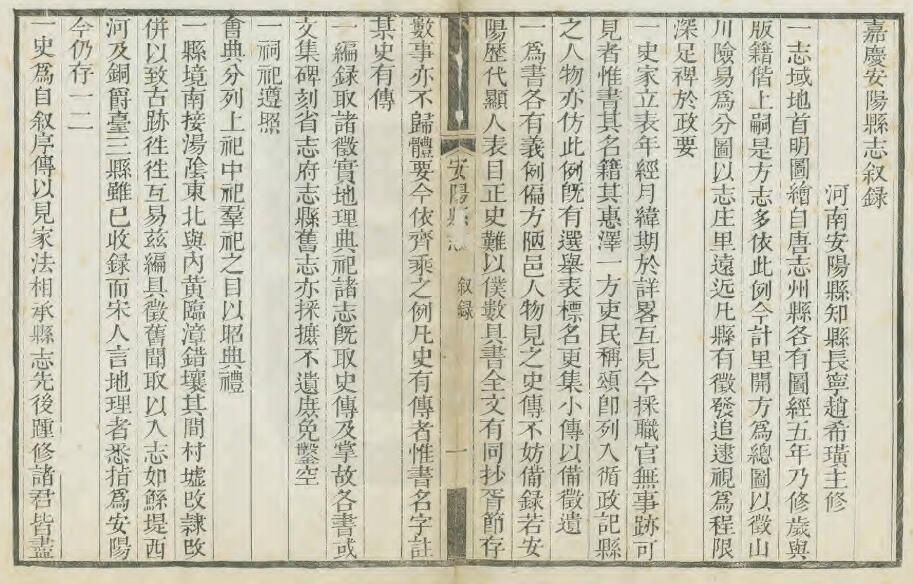 嘉慶安陽縣志叙録
河南安陽縣知縣長寧趙希璜主修
一志域地首明圖繪自唐志州縣各有圖經五年乃修歲與
版籍偕上嗣是方志多依此例今計里開方爲總圖以徵山
川險易爲分圖以志庄里遠近凡縣有徵發追逮視爲程限
深足裨於政要
一史家立表年經月緯期於詳畧互見今採職官無事跡可
見者惟書其名籍其惠澤一方吏民稱頌卽列入循政記縣
之人物亦仿此例旣有選舉表標名更集小傳以備徵遺
一爲書各有義例偏方陋邑人物見之史傳不妨備録若安
陽歷代顯人表目正史難以僕數具書全文有同抄胥節存
安陽縣志
叙録
一
數事亦不歸體要今依齊乘之例凡史有傳者惟書名字註
某史有傳
一編録取諸徵實地理典祀諸志旣取史傳及掌故各書或
文集碑刻省志府志縣舊志亦採摭不遺庶免鑿空
一祠祀遵照
會典分列上祀中祀羣祀之目以昭典禮
一縣境南接湯陰東北與内黄臨漳錯壤其間村墟改隷改
併以致古跡徃徃互易兹編具徵舊聞取以入志如鯀堤西
河及銅爵臺三縣雖已收録而宋人言地理者悉指爲安陽
今仍存一二
一史爲自叙序傳以見家法相承縣志先後踵修諸君皆盡